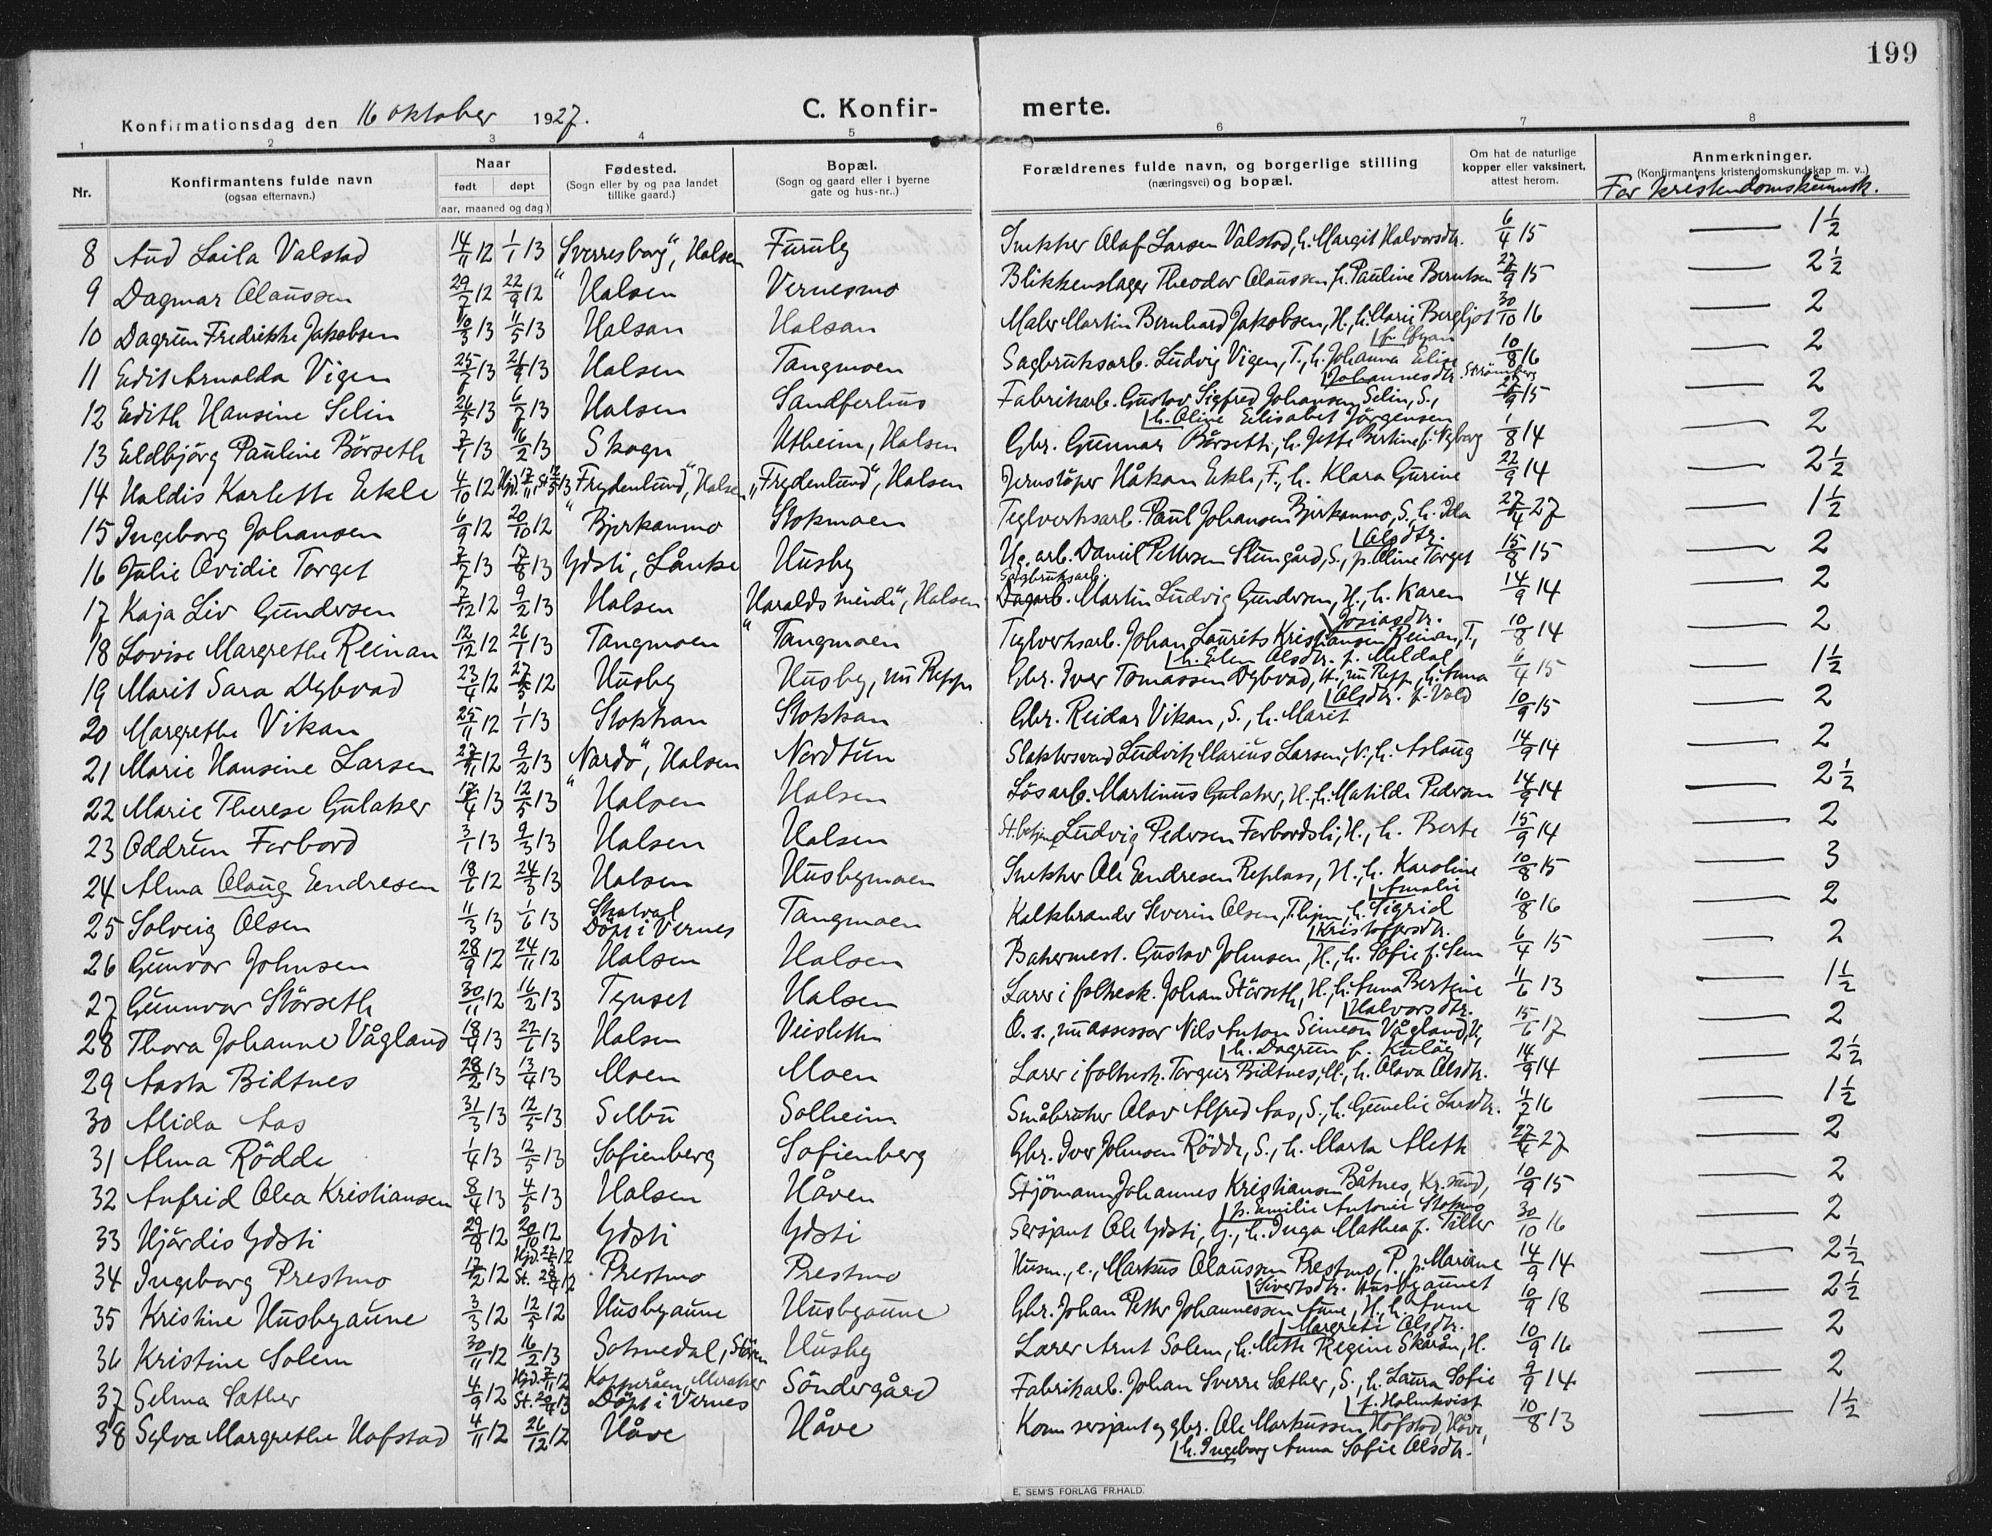 199
Konfirmationsdag den 16 oktober 1927.
C. Konfir- merte.
1 2 3 4 5 6 7 8
Nr. Konfirmantens fulde navn (ogsaa efternavn.) Naar født døpt aar, maaned og dag) Fødested. (Sogn eller by og paa landet tillike gaard.) Bopæl. (Sogn og gaard eller i byerne gate og hus-nr..) Forældrenes fulde navn, og borgerlige stilling (næringsvei) og bopæl. Om hat de naturlige kopper eller vaksinert, attest herom. Anmerkninger. (Konfirmantens kristendomskundskap m. v.)
For kristendomskunnsk.
8 Aud Laila Valstad 14/11 12 1/1 13 "Sverresborg", Halsen Furuly Snekker Olaf Larsen Valstad, h. Margit Halvorsdtr. 6/4 15 — 1½
9 Dagmar Olaussen 29/7 12 22/9 12 Halsen Vernesmo Blikkenslager Theodor Olaussen, h. Pauline Berntsen 27/9 15 — 2½
10 Dagrun Fredrikke Jakobsen 10/3 13 11/5 13 Halsan Halsan Maler Martin Bernhard Jakobsen, H., h. Marie Bergljot 30/10 16 — 2
11 Edit Arnalda Vigen 13 13 Halsen Tangmoen Sagbruksarb. Ludvig Vigen, T., h. Johanna Elise Johannesdtr. Strömberg 10/8 16 — 2
12 Edith Hansine Selin 13 6/2 13 Halsen Sandferhus Fabrikarb. Gustav Sigfred Johansen Selin, S., h. Oline Elisabet Jörgensen 27/9 15 — 2
13 Eldbjörg Pauline Börseth 13 16/2 13 Skogn Utheim, Halsen Gbr. Gunnar Börseth, h. Jette Bertine f. Nyborg 1/8 14 — 2
14 Haldis Karlotte Ekle 4/10 12 Hjd. St. 13 "Frydenlund", Halsen "Frydenlund", Halsen Jernstöper Håkan Ekle, F., h. Klara Gurine 22/9 14 — 2½
15 Ingeborg Johansen 6/9 12 20/10 12 Bjerkanmo Stokmoen Teglverksarb. Paul Johansen Bjerkanmo, S., h. Ida Olsdtr. 27/4 27 — 1½
16 Julie Ovidie Torget 13 17/8 13 Ydsti, Lånke Husby Ug. arb. Daniel Pettersen Stungård, S., p. Oline Torget 15/8 15 — 2
17 Kaja Liv Gundersen 7/12 12 9/2 13 Halsen "Haralds minde", Halsen Sagbruksarb. Martin Ludvig Gundersen, H., h. Karen Josiasdtr. 14/9 14 — 2
18 Lovise Margrethe Reinan 12/12 12 26/1 13 Tangmoen Tangmoen Teglverksarb. Johan Laurits Kristiansen Reinan, T., h. Elen Olsdtr. f. Meldal 10/8 14 — 2
19 Marit Sara Dybvad 23/4 12 27/5 12 Husby Husby, nu Reppe Gbr. Iver Tomassen Dybvad, H., nu Repp., h. Anna Olsdtr. f. Vold 6/4 15 — 1½
20 Margrethe Vikan 25/11 12 1/1 13 Stokkan Stokkan Gbr. Reidar Vikan, S., h. Marit 10/9 15 — 2
21 Marie Hansine Larsen 27/11 12 9/2 13 "Nardo", Halsen Nordtun Slaktersvend Ludvik Marius Larsen, N., h. Aslaug 14/9 14 — 2
22 Marie Therese Gulaker 17/4 13 12/5 13 Halsen Halsen Lösarb. Martinus Gulaker, H., h. Matilde Pedersen 14/9 14 — 2½
23 Oddrun Forbord 3/1 13 9/3 13 Halsen Halsen St.betjen. Ludvig Pedersen Forbordsli, H., h. Berte 15/9 14 — 2
24 Alma Olaug Eendresen 18/6 12 24/3 13 Halsen Husbymoen Snekker Ole Eendresen Replass, H., h. Karoline Amalie 10/8 15 — 3
25 Solveig Olsen 11/3 13 1/6 13 Skatval Döpt i Vernes Tangmoen Kalkbrander Severin Olsen, h. Sigrid Kristoffersdtr. 10/8 16 — 2
26 Gunvor Johnsen 28/9 12 24/11 12 Halsen Halsen Bakermest. Gustav Johnsen, H., h. Sofie f. Sem 6/4 15 — 2
27 Gunnvor Störseth 30/11 12 16/2 13 Tynset Halsen Lærer i folkesk. Johan Störseth, H., h. Anna Bertine Halvorsdtr. 11/6 13 — 1½
28 Thora Johanne Vågland 18/4 13 22/6 13 Halsen Veisletta O. s., nu assessor Nils Anton Simeon Vågland, V., h. Dagrun f. Kuløe 15/6 17 — 2
29 Aasta Bidtnes 28/2 13 13/4 13 Moen Moen Lærer i folkesk. Torgeir Bidtnes, M., h. Olava Olsdtr. 14/9 14 — 2½
30 Alida Aas 31/3 13 12/5 13 Selbu Solheim Småbruker Olav Alfred Aas, S., h. Gunelie Larsdtr. 1/2 16 — 1½
31 Alma Rödde 1/4 13 12/5 13 Sofienberg Sofienberg Gbr. Iver Johnsen Rödde, S., h. Marta Aleth 27/4 27 — 2
32 Anfrid Olea Kristiansen 8/4 13 4/5 13 Halsen Håven Stjömann Johannes Kristiansen Båtnes, Kr. sund, p. Emilie Antonie Stokmo 10/9 15 — 2
33 Hjördis Ydsti 29/8 12 20/10 12 Ydsti Ydsti Sersjant Ole Ydsti, Y., h. Inga Mathea f. Tiller 30/10 16 — 2
34 Ingeborg Prestmo 17/2 12 Hjd. 12 St. 28/4 12 Prestmo Prestmo Husm., e., Markus Olaussen Prestmo, P., p. Mariane Sivertsdtr. Husbyaunet 14/9 14 — 2½
35 Kristine Husbyaune 3/3 12 12/5 12 Husbyaune Husbyaune Gbr. Johan Petter Johannessen Aune, H., h. Anne Margrete Olsdtr. 10/9 18 — 2½
36 Kristine Solem 30/11 12 16/2 13 Soknedal, Stören Husby Lærer Arnt Solem, h. Mette Regine Skårån, H. 10/9 16 — 2
37 Selma Sæther 4/9 12 Hjd. 12 St. 20/4 13 Kopperåen, Meraker Döpt i Vernes Söndergård Fabrikarb. Johan Sverre Sæther, S., h. Laura Sofie f. Holmkvist 9/9 14 — 2
38 Sylva Margrethe Hofstad 4/11 12 26/12 12 Håve Håve Korn sersjant og gbr. Ole Markussen Hofstad, Håve, h. Ingeborg Anna Sofie Olsdtr. 10/8 13 — 1½
E. SEM'S FORLAG FR.HALD.